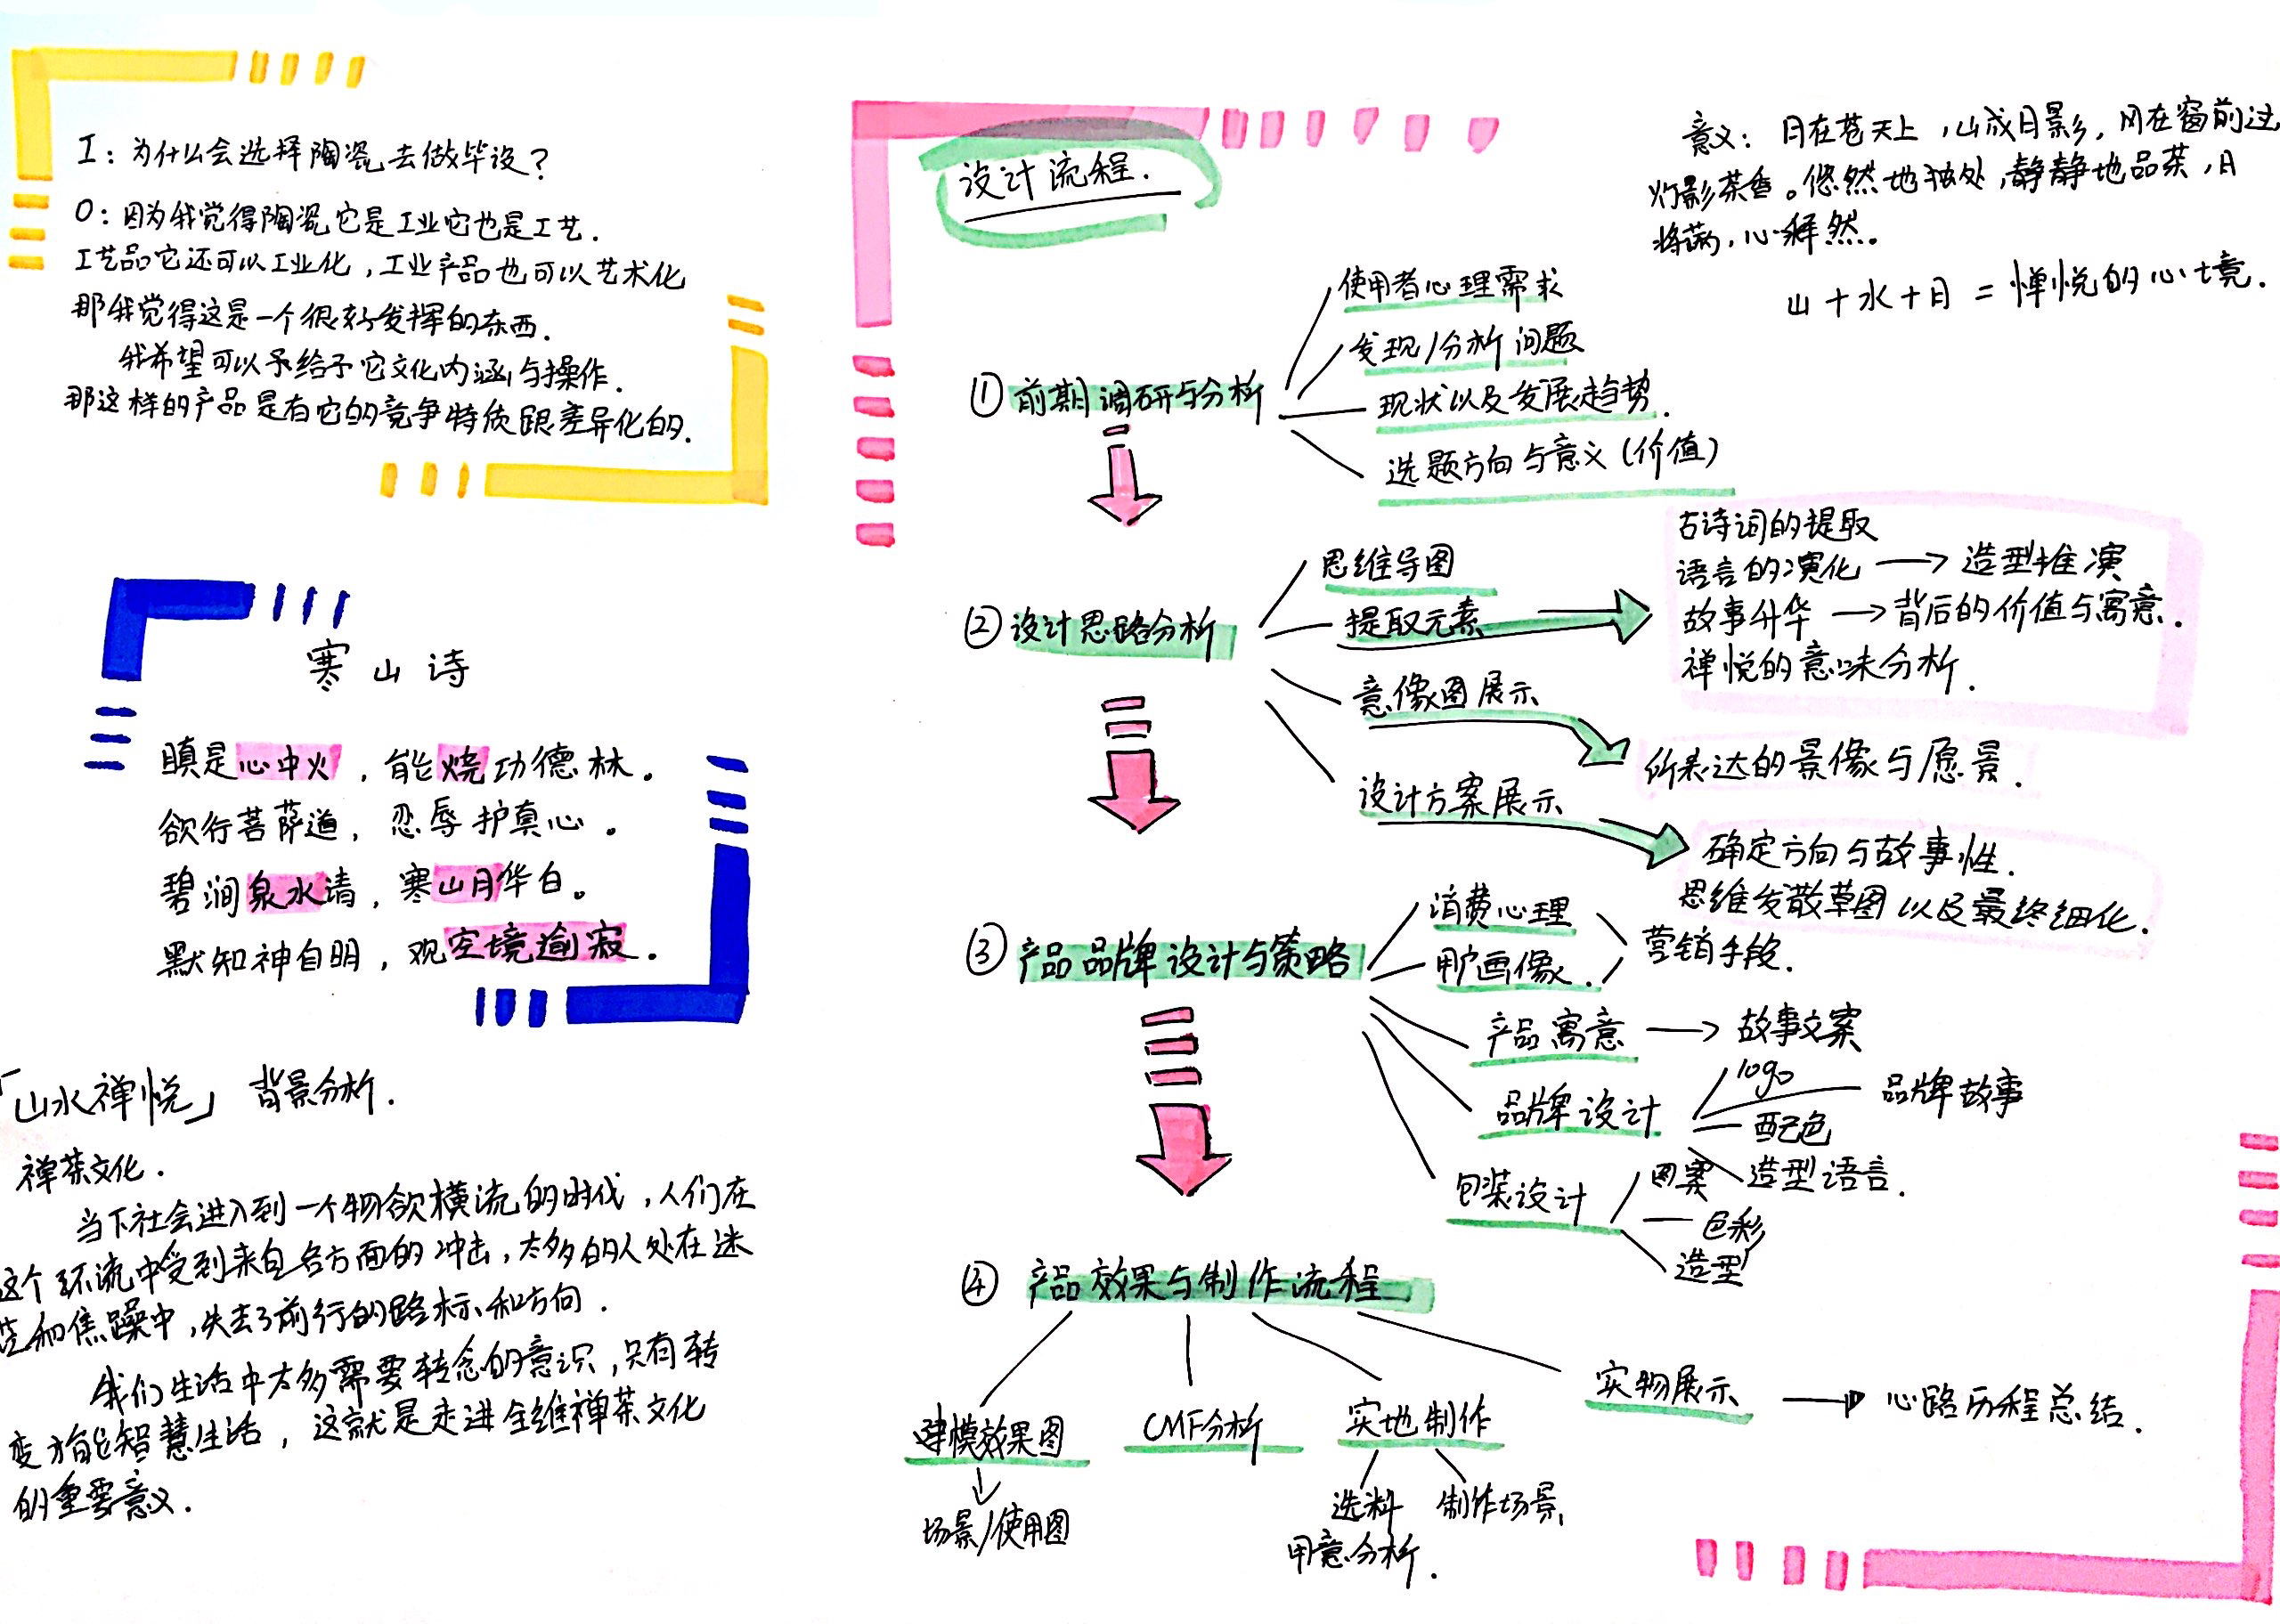 I：为什么会选择陶瓷去做毕设？
O：因为我觉得陶瓷它是工业它也是工艺.
工艺品它还可以工业化，工业产品也可以艺术化
那我觉得这是一个很好发挥的东西.
我希望可以予给予它文化内涵与操作.
那这样的产品是有它的竞争特质跟差异化的.
寒山诗
瞋是心中火，能烧功德林。
欲行菩萨道，忍辱护真心。
碧涧泉水清，寒山月华白。
默知神自明，观空境逾寂.
「山水禅悦」背景分析.
禅茶文化.
当下社会进入到一个物欲横流的时代，人们在
这个环流中受到来自各方面的冲击，太多的人处在迷
茫和焦躁中，失去了前行的路标和方向.
我们生活中太多需要转念的意识，只有转
变方能智慧生活，这就是走进全维禅茶文化
的重要意义.
设计流程.
意义：月在苍天上，山成月影，风在窗前过
灯影茶香。悠然地独处，静静地品茶，月
将满，心释然。
山+水+月=禅悦的心境.
①前期调研与分析
使用者心理需求
发现/分析问题
现状以及发展趋势.
选题方向与意义(价值)
②设计思路分析
思维导图
提取元素
古诗词的提取
语言的演化→造型推演
故事升华→背后的价值与寓意.
禅悦的意味分析.
意像图展示
所表达的景像与愿景.
设计方案展示
确定方向与故事性.
思维发散草图以及最终细化.
③产品品牌设计与策略
消费心理
用户画像.
营销手段.
产品寓意→故事文案
品牌设计
logo
品牌故事
配色
造型语言.
包装设计
图案
色彩
造型
④产品效果与制作流程
建模效果图
场景/使用图
CMF分析
实地制作
选料
用意分析.
制作场景
实物展示→心路历程总结.